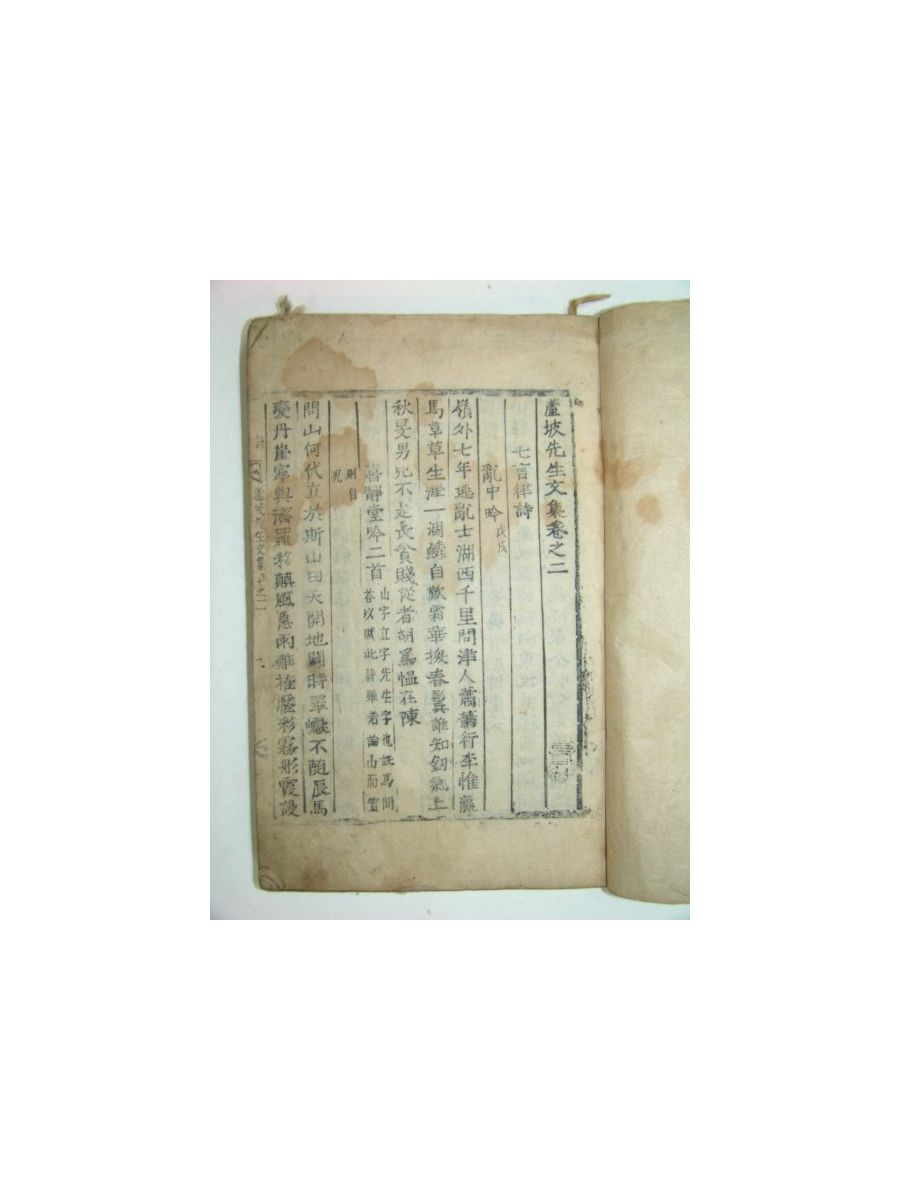 蘆坡先生文集卷之二
七言律詩
亂中吟 戊戌
嶺外七年逃亂士湖西千里問津人蕭蕭行李惟羸
馬草草生涯一涸鱗自歎霜華挼春鬓誰知釼氣上
秋旻男兒不是長貧賤從者胡爲慍在陳
喜靜堂吟二首
山字立字先生字也設爲問
答以賦此詩雖若論山而實
則自
況
問山何代立於斯山曰天開地闢時翠巘不隨辰馬
變丹崖寧與海羅移顚風急雨難摧隱彩霧彤霞謾